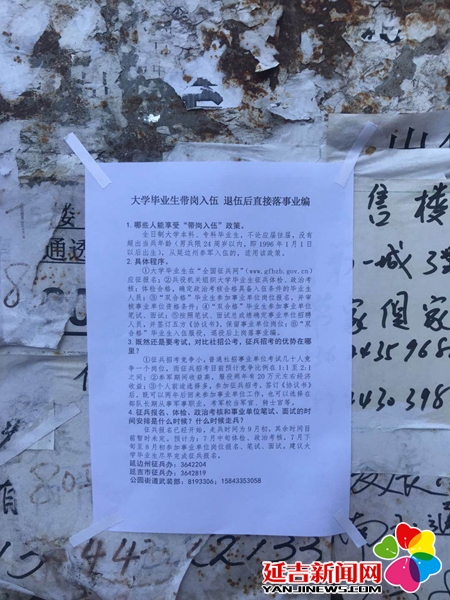 大学毕业生带岗入伍 退伍后直接落事业编
1.哪些人能享受“带岗入伍”政策。
全日制大学本科、专科毕业生，不论应届往届，没有
超出当兵年龄（男兵限24周岁以内，即1996年1月1日
以后出生），从延边州参军入伍的，适用该政策。
2.具体程序。
①大学毕业生在“全国征兵网”（www.gfbzb.gov.cn）
应征报名；②兵役机关组织大学毕业生应征兵体检、政治考
核；体检合格，确定政治考核合格具备入伍条件的为“双合格”
人员；③“双合格”毕业生参加事业单位岗位报名，并审
核事业单位资格条件；④“双合格”毕业生参加事业单位
笔试、面试；⑤按照笔试、面试总成绩确定事业单位招聘
人员，并签订五方《协议书》，保留事业单位岗位；⑥“双
合格”毕业生入伍服役，退役后上岗落事业编。
3.既然还是要考试，对比社招公考，征兵招考的优势在
哪里？
①征兵招考竞争小，普通社招事业单位考试几十人竞
争一个岗位，而征兵招考目前预计竞争比例在1:1至2:1
之间；②参军期间收益高，服役两年有20万元左右经济
收益；③个人前途选择多，参加征兵招考，签订《协议书》
后，既可以两年后回来参加事业单位工作，也可以选择在
部队长期从事军事职业，考军校当军官、转士官等。
4.征兵报名、体检、政治考核和事业单位笔试、面试的时
间安排是什么时候？什么时候走兵？
征兵报名已经开始，走兵时间为9月初，其余时间目
前暂时未定，预计为：7月中旬体检、政治考核，7月下
旬至8月初参加事业单位岗位报名、笔试、面试，建议大
学毕业生尽早完成征兵报名。
延边州征兵办：3642204
延吉市征兵办：3642819
公园街道武装部：8193306；15843353058
售楼
一城
通透
家
435968
430398
44
22133
延吉新闻网
WWW.YANJINEWS.COM